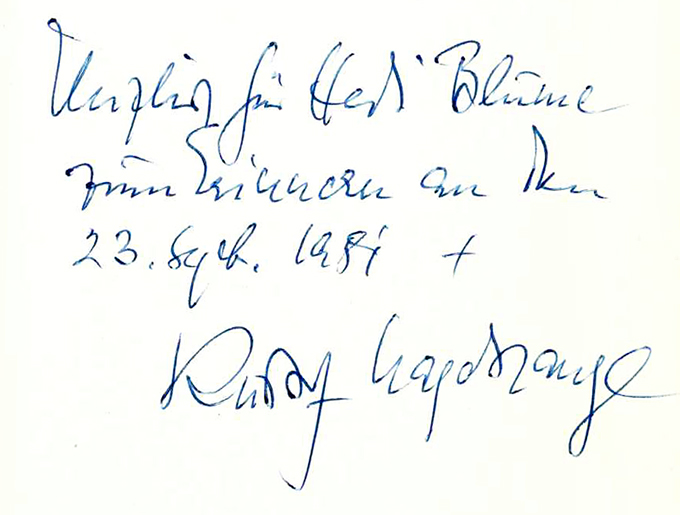 Herzlich für Hedi Blume
zum Erinnern an den
23. Sept. 1981 +
Rudolf Hagelstange